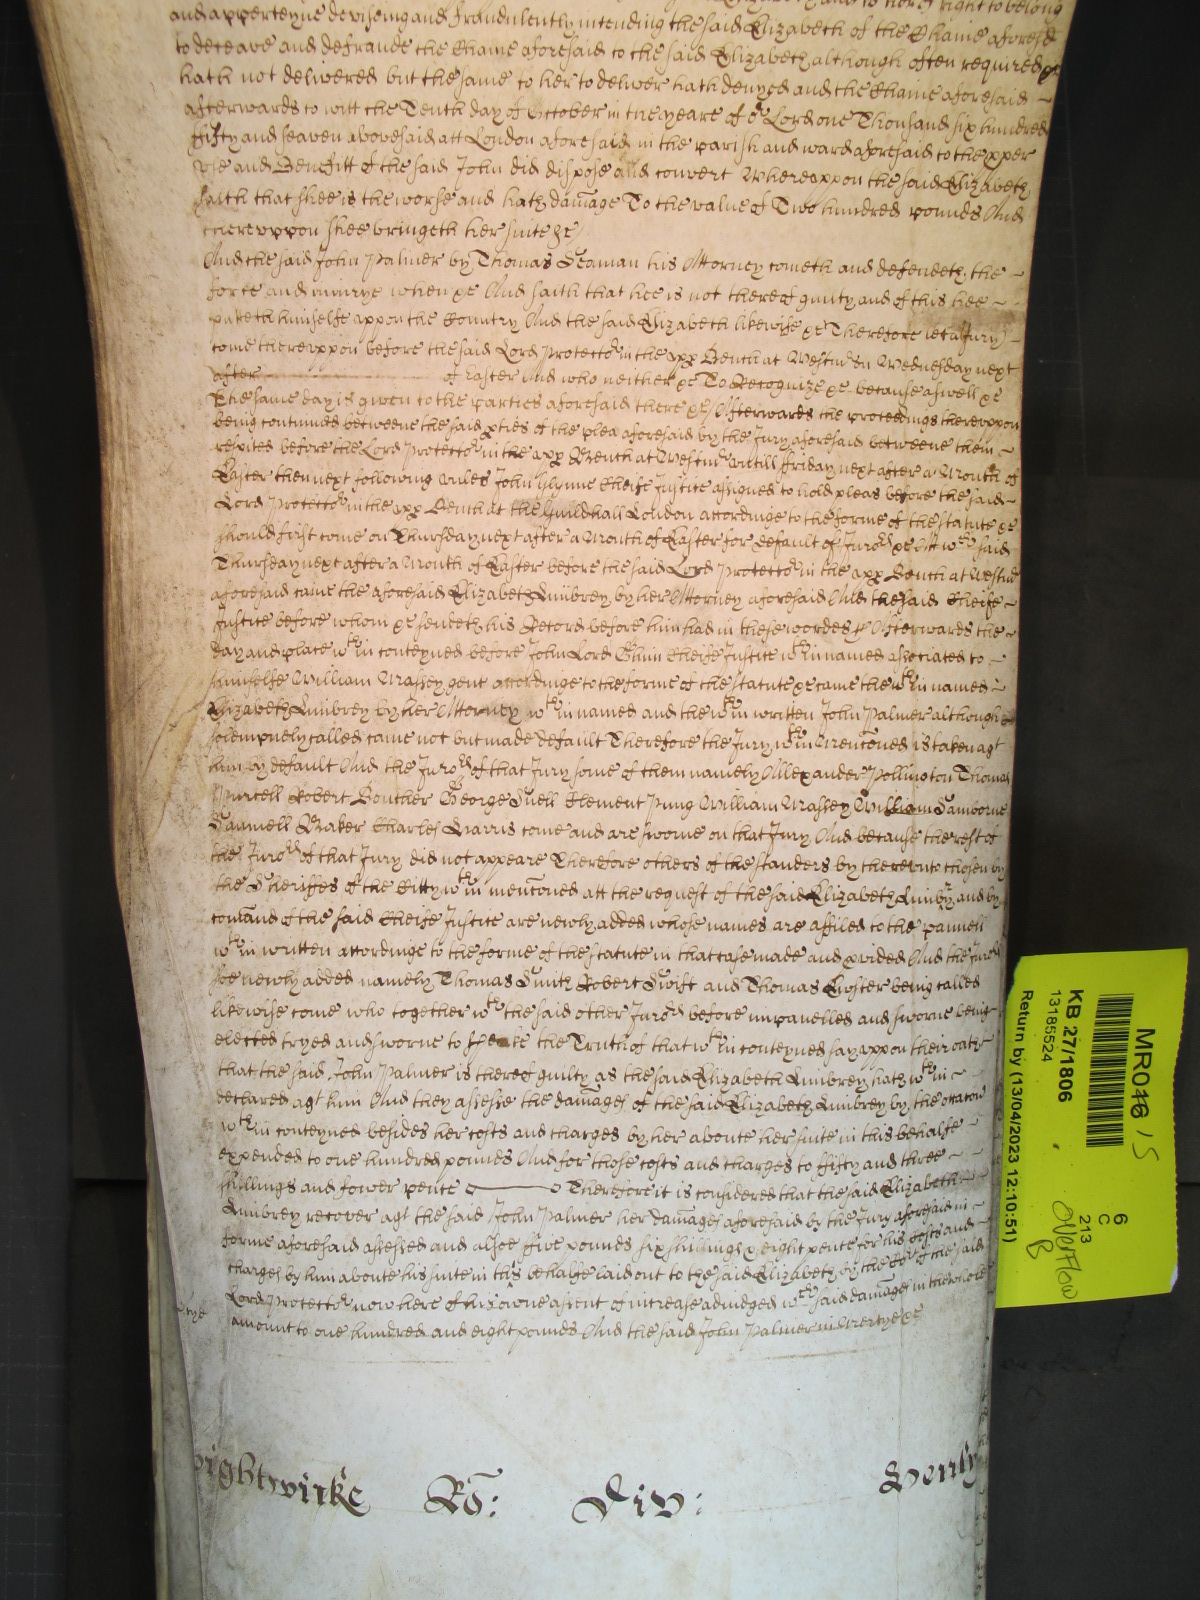 and apperteyne devisinge and fraudulently intending the said Elizabeth of the Chaine aforesd
to deceave and defraude the Chaine aforesaid to the said Elizabeth although often required &
hath not delivered but the same to her to deliver hath denyed and the Chaine aforesaid
afterwards to witt the Tenth day of October in the yeare of or Lord one Thousand six hundred
fifty and seaven abovesaid att London aforesaid in the parish and ward aforesaid to the pper
use and Benefitt of the said John did dispose and convert Whereuppon the said Elizabeth
saith that shee is the worse and hath damage To the value of Two hundred pounds And
thereuppon shee bringeth her suite &c
And the said John Palmer by Thomas Seaman his Attorney cometh and defendeth the
force and iniurye when &c And saith that hee is not thereof guilty and of this hee
putteth himselfe uppon the Country And the said Elizabeth likewise &c Therefore lett a Jury
come thereuppon before the said Lord Protector in the upp Bench at Westmr on Wednesday next
after of Easter And who neither &c To Recognize &c because aswell &c
The same day is given to the parties aforesaid there &c Afterwards the proceedings thereuppon
being continued betweene the said pties of the plea aforesaid by the Jury aforesaid betweene them
respited before the Lord Protector in the upp Bench at Westmr untill ffriday next after a Month of
Easter then next following unles John Glynne Cheife Justice assigned to hold pleas before the said
Lord Protector in the upp Bench at the Guildhall London accordinge to the forme of the statute &c
should first come on Thursday next after a Month of Easter for default of Jurors &c Att wch said
Thursday next after a Month of Easter before the said Lord Protector in the upp Bench at Westmr
aforesaid came the aforesaid Elizabeth Aubrey by her Attorney aforesaid And the said Cheife
Justice before whom &c sendeth his Record before him had in these wordes &c Afterwards the
day and place wthin conteyned before John Lord Glynn Cheife Justice wthin named associated to
himselfe William Massey gent accordinge to the forme of the statute &c came the wthin named
Elizabeth Aubrey by her Attorney wthin named and the wthin written John Palmer although
solempnely called came not but made default Therefore the Jury wthin menconed is taken agt
him by default And the Jurors of that Jury some of them namely Allexander Pollington Thomas
Purcell Robert Boucher George Snell Clement Pung William Massey William Samborne
Samuell Baker Charles Harris come and are sworne on that Jury And because the rest of
the Jurors of that Jury did not appeare Therefore others of the standers by thereunto chosen by
the Sheriffes of the Citty wthin menconed att the request of the said Elizabeth Aubrey and by
comand of the said Cheife Justice are newly added whose names are affiled to the pannell
wthin written accordinge to the forme of the statute in that case made and pvided And the Jurors
soe newly added namely Thomas Smith Robert Swift and Thomas being called
likewise come who together wth the said other Jurors before impanelled and sworne being
elected tryed and sworne to speake the Truth of that wthin conteyned say uppon their oath
that the said John Palmer is thereof guilty as the said Elizabeth Aubrey hath wthin
declared agt him And they assesse the damages of the said Elizabeth Aubrey by the occacon
wthin conteyned besides her costs and charges by her aboute her suite in this behalfe
expended to one hundred pounds And for those costs and charges to ffifty and three
shillings and fower pence Therefore it is considered that the said Elizabeth
Aubrey recover agt the said John Palmer her damages aforesaid by the Jury aforesaid in
forme aforesaid assessed and alsoe five pounds six shillings & eight pence for his costs and
charges by him aboute his suite in this behalfe laid out to the said Elizabeth by the Cort of the said
Lord Protector now here of his owne assent of increase adiudged wch said damages in the whole
amount to one hundred and eight pounds And the said John Palmer in mercye &c
Ro:
MR046 15
KB 27/1806
13185524
Return by (13/04/2023 12:10:51)
6
C
213
Overflow
B